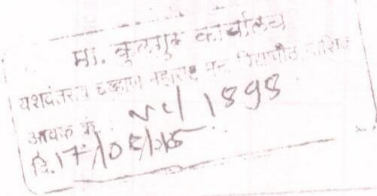 मा. कुलगुरू कार्यालय
यशवंतराव चव्हाण महाराष्ट्र मुक्त विद्यापीठ नाशिक
आवक क्र. 1898
दि. 17/08/